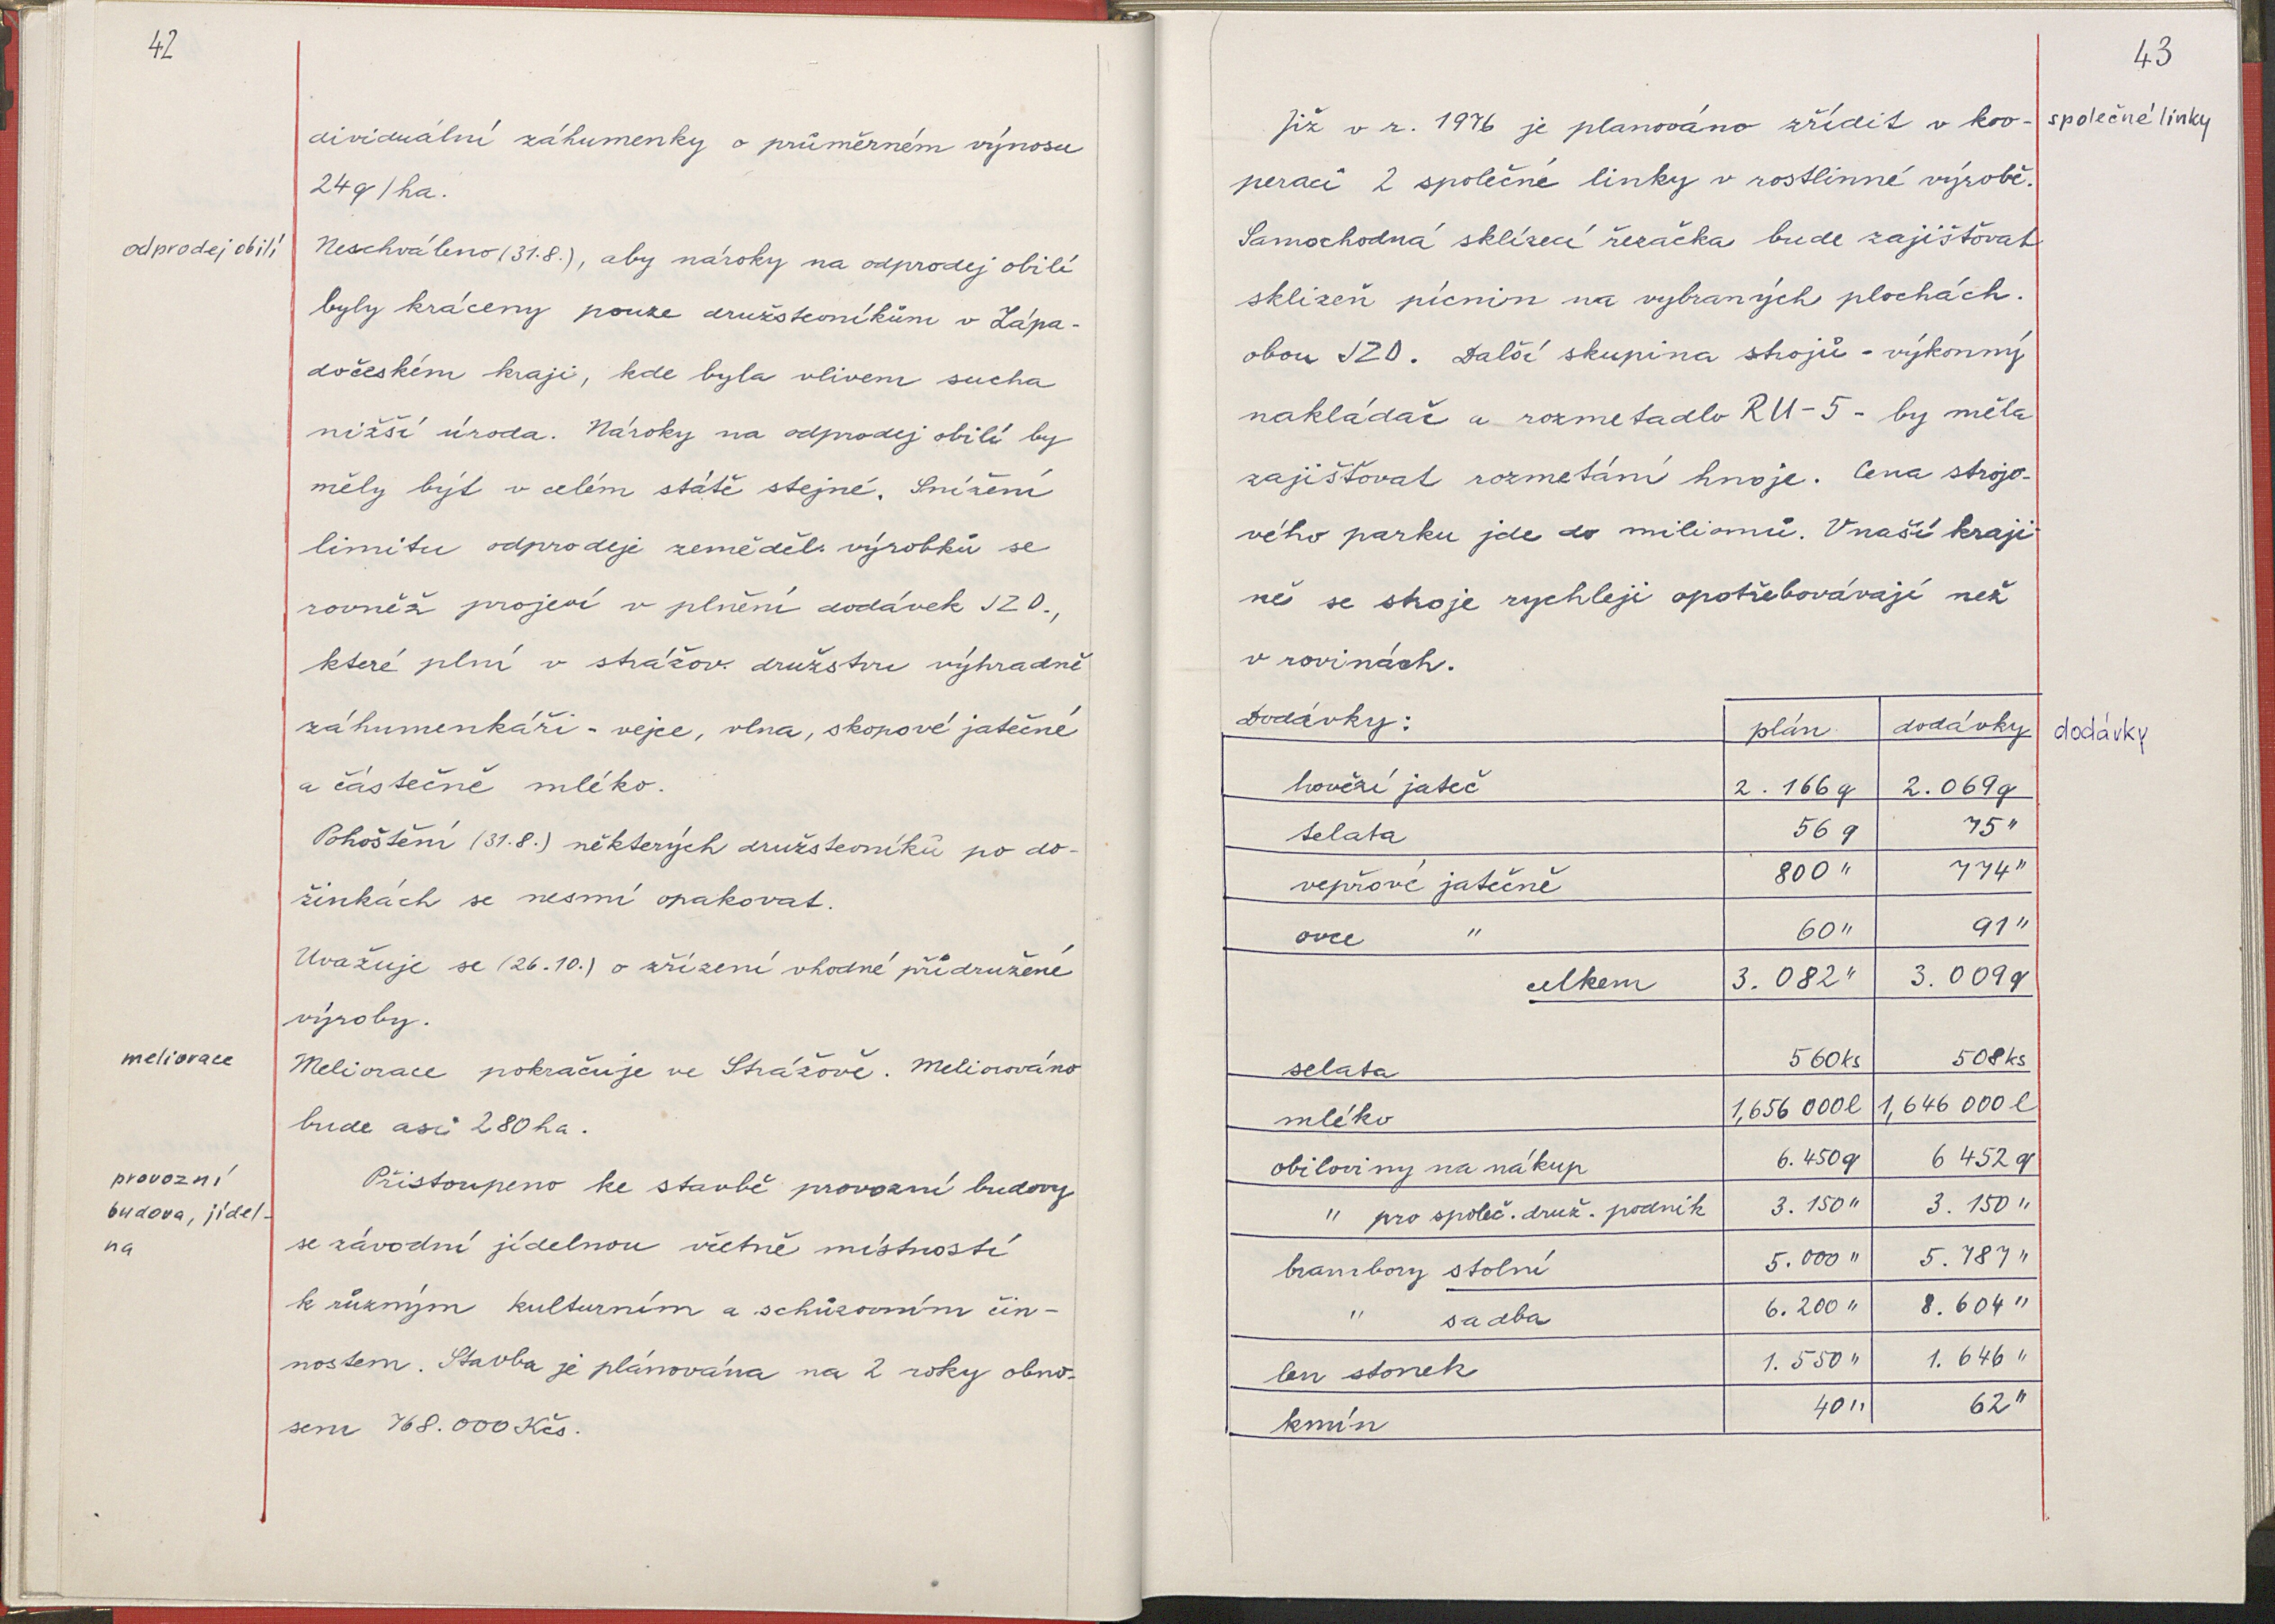 42
dividuální záhumenky o průměrném výnosu
24q/ha.
odprodej obilí
Neschváleno (31.8.), aby nároky na odprodej obilí
byly kráceny pouze družstevníkům v Západočeském
dočeském kraji, kde byla vlivem sucha
nižší úroda. Nároky na odprodej obilí by
měly být v celém státě stejné. Snížení
limitu odprodeje zeměděl. výrobků se
rovněž projeví v plnění dodávek JZD.,
které plní v strážov. družstvu výhradně
záhumenkáři - vejce, vlna, skopové jatečné
a částečně mléko.
Pohoštění (31.8.) některých družstevníků po do-
žinkách se nesmí opakovat.
Uvažuje se (26.10.) o zřízení vhodné přidružené
výroby.
meliorace
Meliorace pokračuje ve Strážově. Meliorováno
bude asi 280 ha.
provozní
budova, jídel-
na
Přistoupeno ke stavbě provozní budovy
se závodní jídelnou včetně místností
k různým kulturním a schůzovním čin-
nostem. Stavba je plánována na 2 roky obno-
sem 768.000 Kčs.
43
Již v r. 1976 je planováno zřídit v koo-
společné linky
peraci 2 společné linky v rostlinné výrobě.
Samochodná sklízecí řezačka bude zajišťovat
sklizeň pícnin na vybraných plochách.
obou JZD. Další skupina strojů - výkonný
nakládač a rozmetadlo RU-5 - by měla
zajišťovat rozmetání hnoje. Cena strojo-
vého parku jde do milionů. V naší kraji-
ně se stroje rychleji opotřebovávají než
v rovinách.
Dodávky: plán dodávky
dodávky
hovězí jateč 2.166q 2.069q
telata 56q 75"
vepřové jatečně 800" 774"
ovce " 60" 91"
celkem 3.082" 3.009q
selata 560ks 508ks
mléko 1,656 000l 1,646 000l
obiloviny na nákup 6.450q 6 452q
" pro společ. druž. podnik 3.150" 3.150"
brambory stolní 5.000" 5.787"
" sadba 6.200" 8.604"
len stonek 1.550" 1.646"
kmín 40" 62"